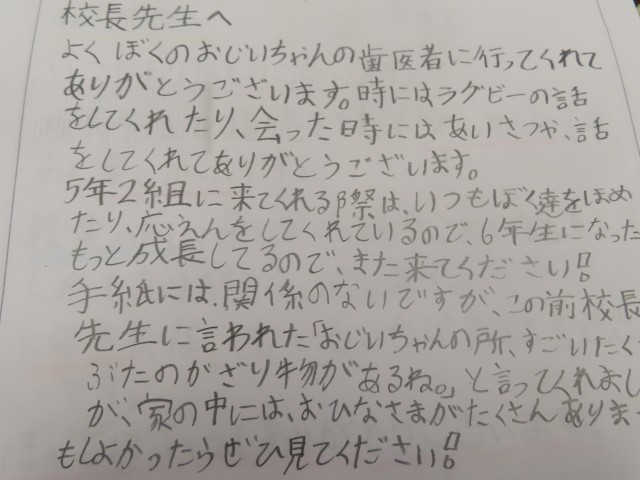 校長先生へ
よくぼくのおじいちゃんの歯医者に行ってくれて
ありがとうございます。時にはラグビーの話
をしてくれたり、会った時には、あいさつや、話
をしてくれてありがとうございます。
5年2組に来てくれる際は、いつもぼく達をほめ
たり、応えんをしてくれているので、6年生になった
もっと成長してるので、また来てください!!
手紙には、関係のないですが、この前校長
先生に言われた「おじいちゃんの所、すごいたく
ぶたのかざり物があるね。」と言ってくれまし
が、家の中には、おひなさまがたくさんありま
もしよかったらぜひ見てください!!